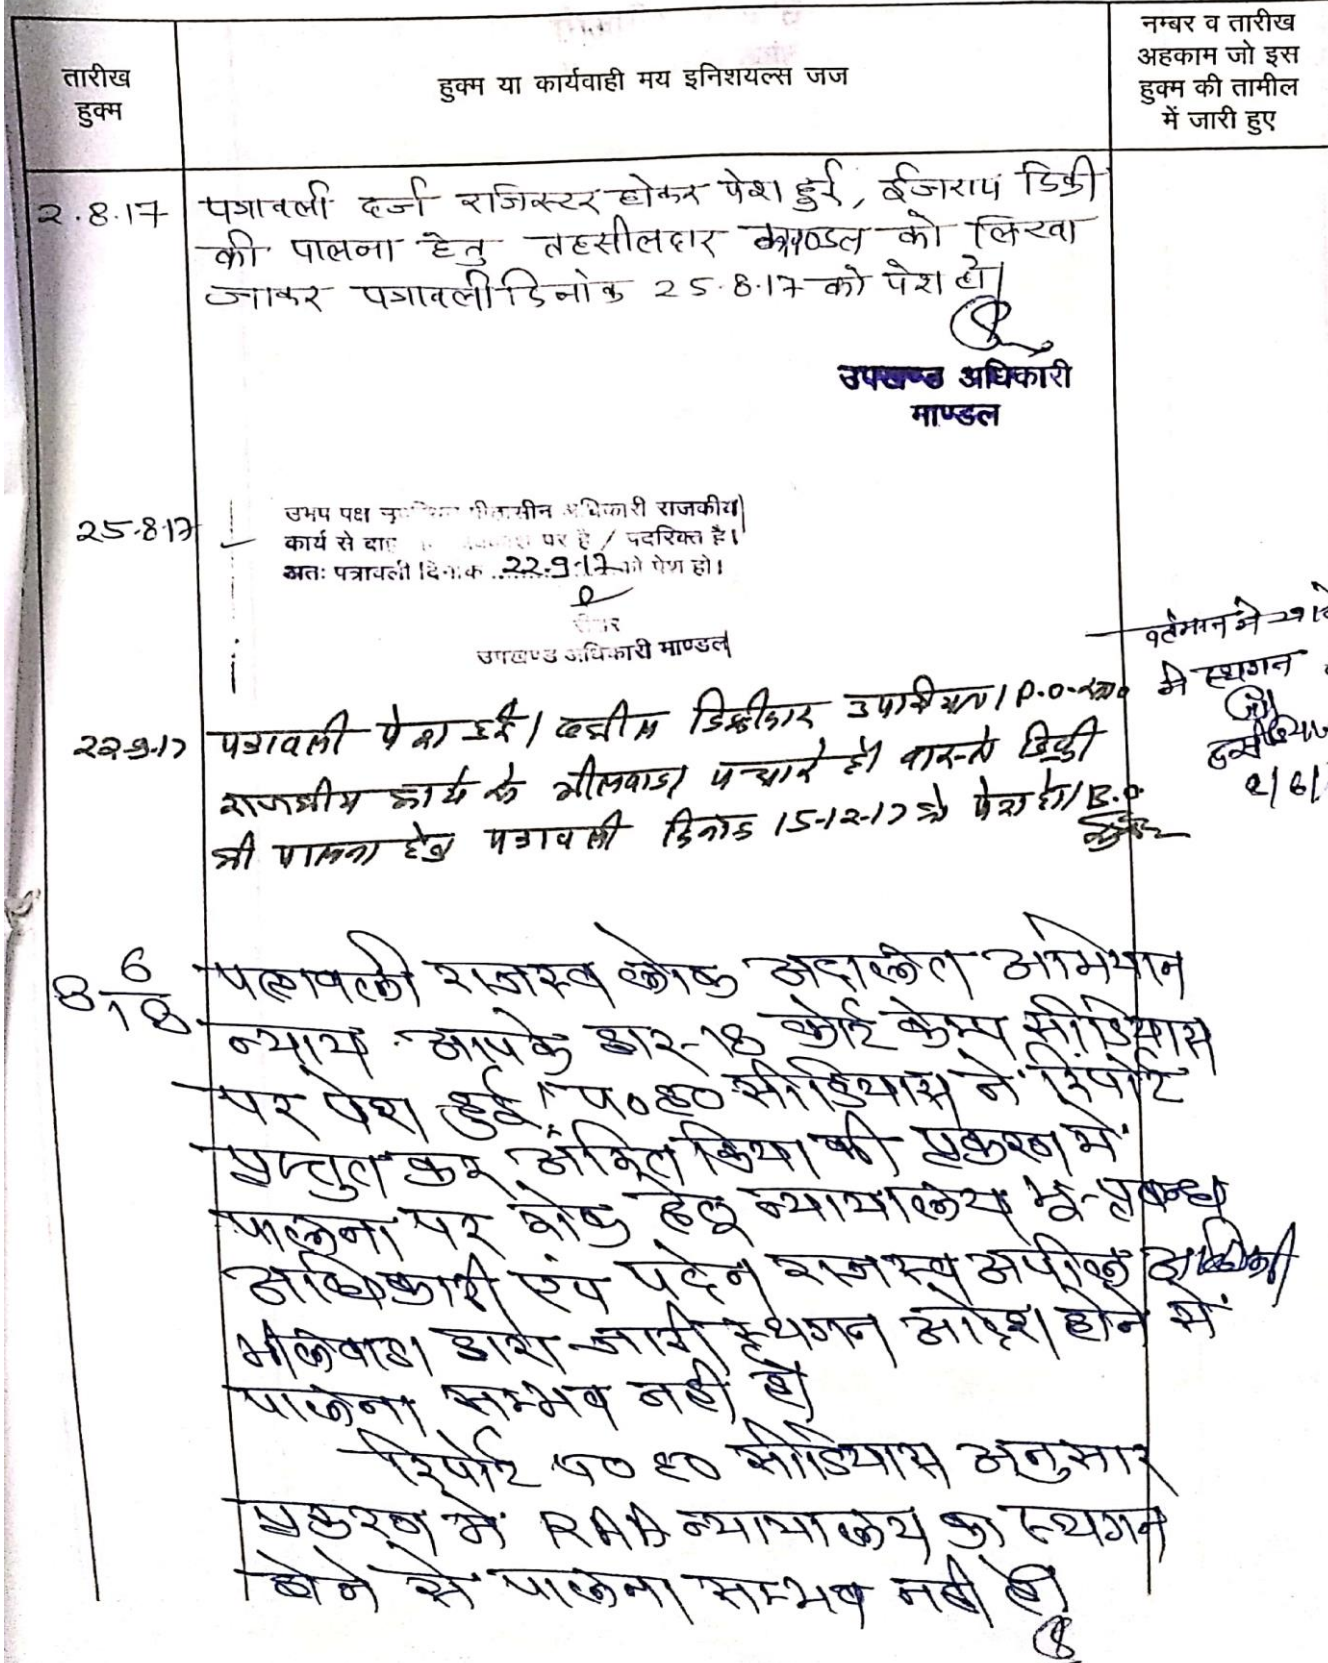 तारीख
हुक्म
हुक्म या कार्यवाही मय इनिशयल्स जज
नम्बर व तारीख
अहकाम जो इस
हुक्म की तामील
में जारी हुए
2.8.17 पत्रावली दर्ज राजिस्टर होकर पेश हुई, ईजराय डिक्री
की पालना हेतु तहसीलदार माण्डल को लिखा
जाकर पत्रावली दिनांक 25.8.17 को पेश हो।
उपखण्ड अधिकारी
माण्डल
25.8.17 उभय पक्ष पीठासीन अधिकारी राजकीय
कार्य से पर है / पदरिक्त है।
अतः पत्रावली दिनांक 22.9.17 को पेश हो।
रीडर
उपखण्ड अधिकारी माण्डल
22.9.17 पत्रावली पेश हुई। वकील डिक्रीदार उपस्थित। P.O.
राजकीय कार्य से भीलवाडा पधारे है। वास्ते डिक्री
की पालना हेतु पत्रावली दिनांक 15-12-17 को पेश हो। B.O.
वर्तमान मे
मे स्थगन
8/6/
8 6/18 पत्रावली राजस्व लोक अदालत अभियान
न्याय आपके द्वार-18 कोर्ट केम्प सीडियास
पर पेश हुई। प०ह० सीडियास ने रिपोर्ट
प्रस्तुत कर अंकित किया की प्रकरण में
पालना पर रोक हेतु न्यायालय भू-प्रबन्ध
अधिकारी एंव पदेन राजस्व अपील अधिकारी
भीलवाडा द्वारा जारी स्थगन आदेश होने से
पालना सम्भव नही है।
रिपोर्ट प०ह० सीडियास अनुसार
प्रकरण में RAA न्यायालय का स्थगन
होने से पालना सम्भव नही है।